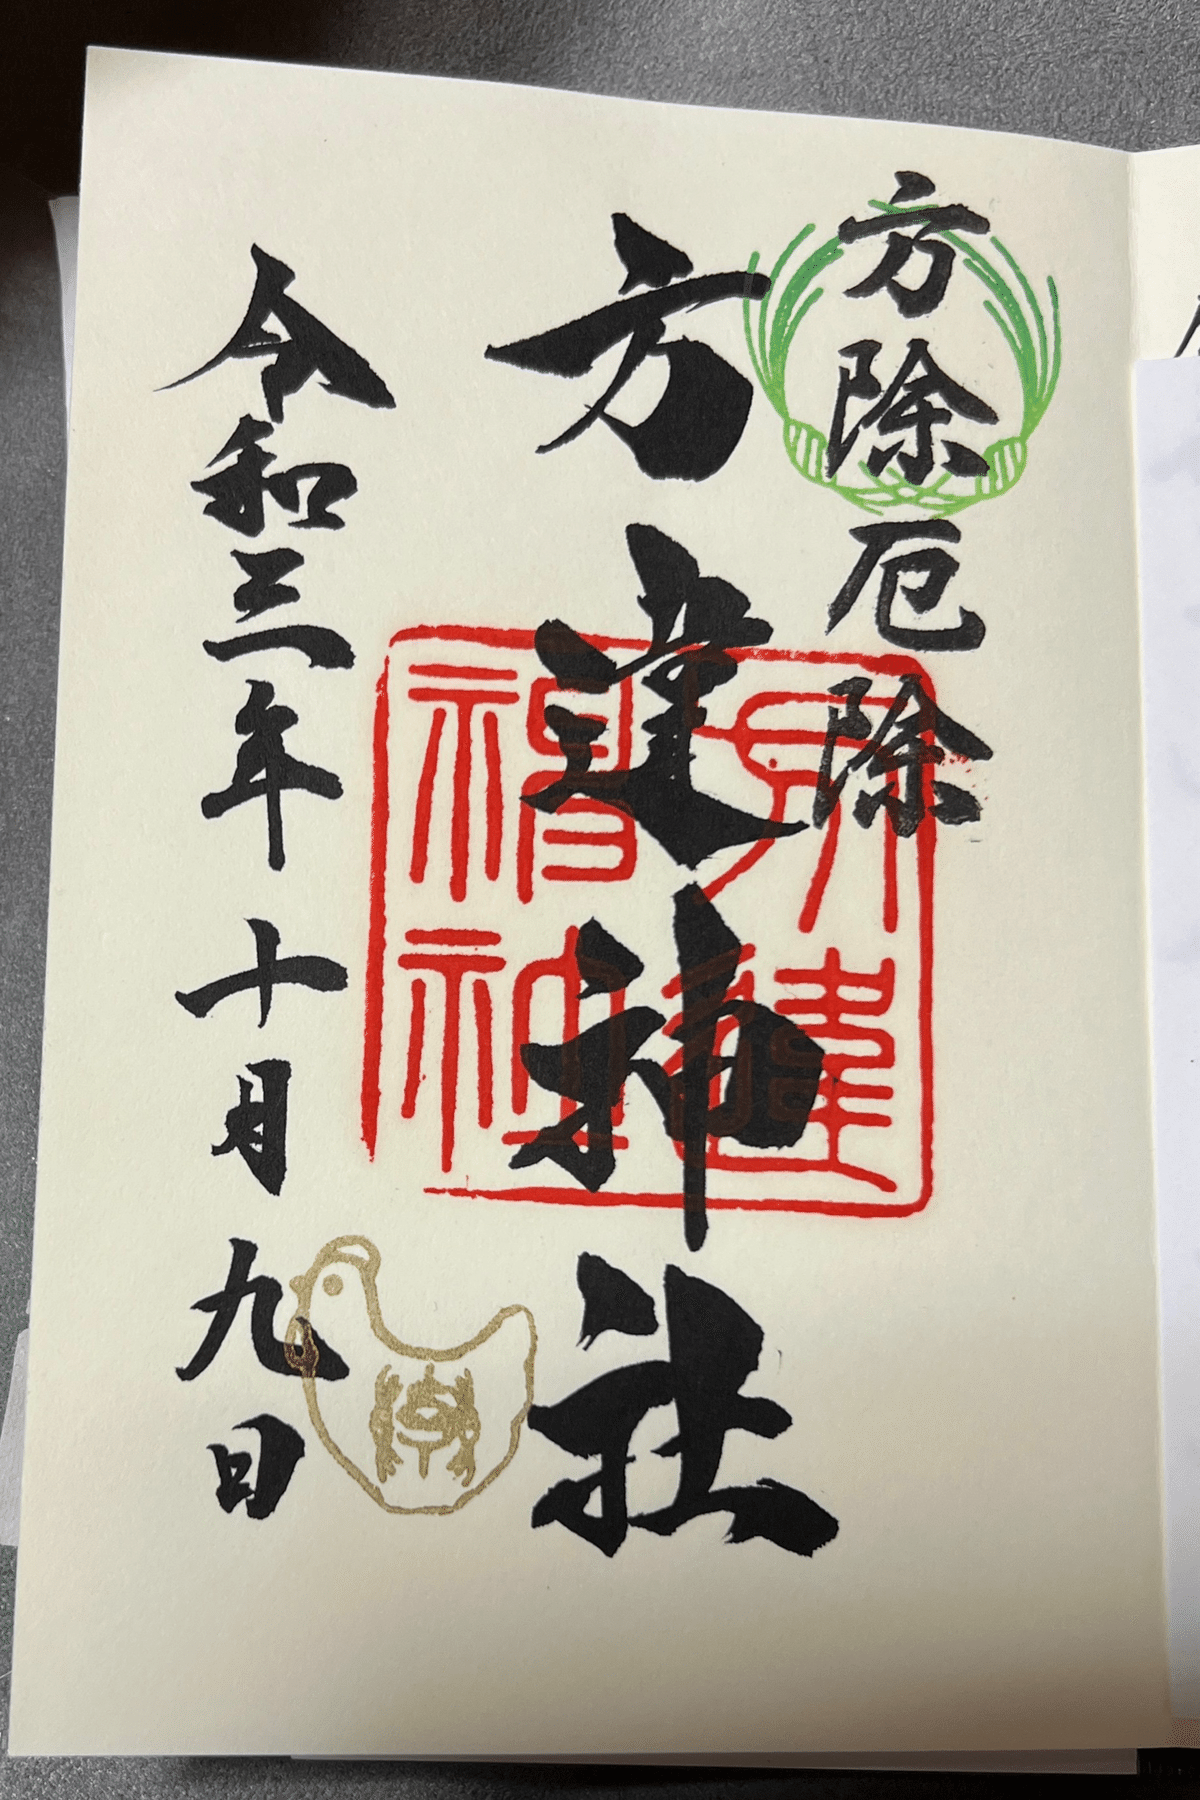 方除厄除
方違神社
令和三年十月九日
方違
神社